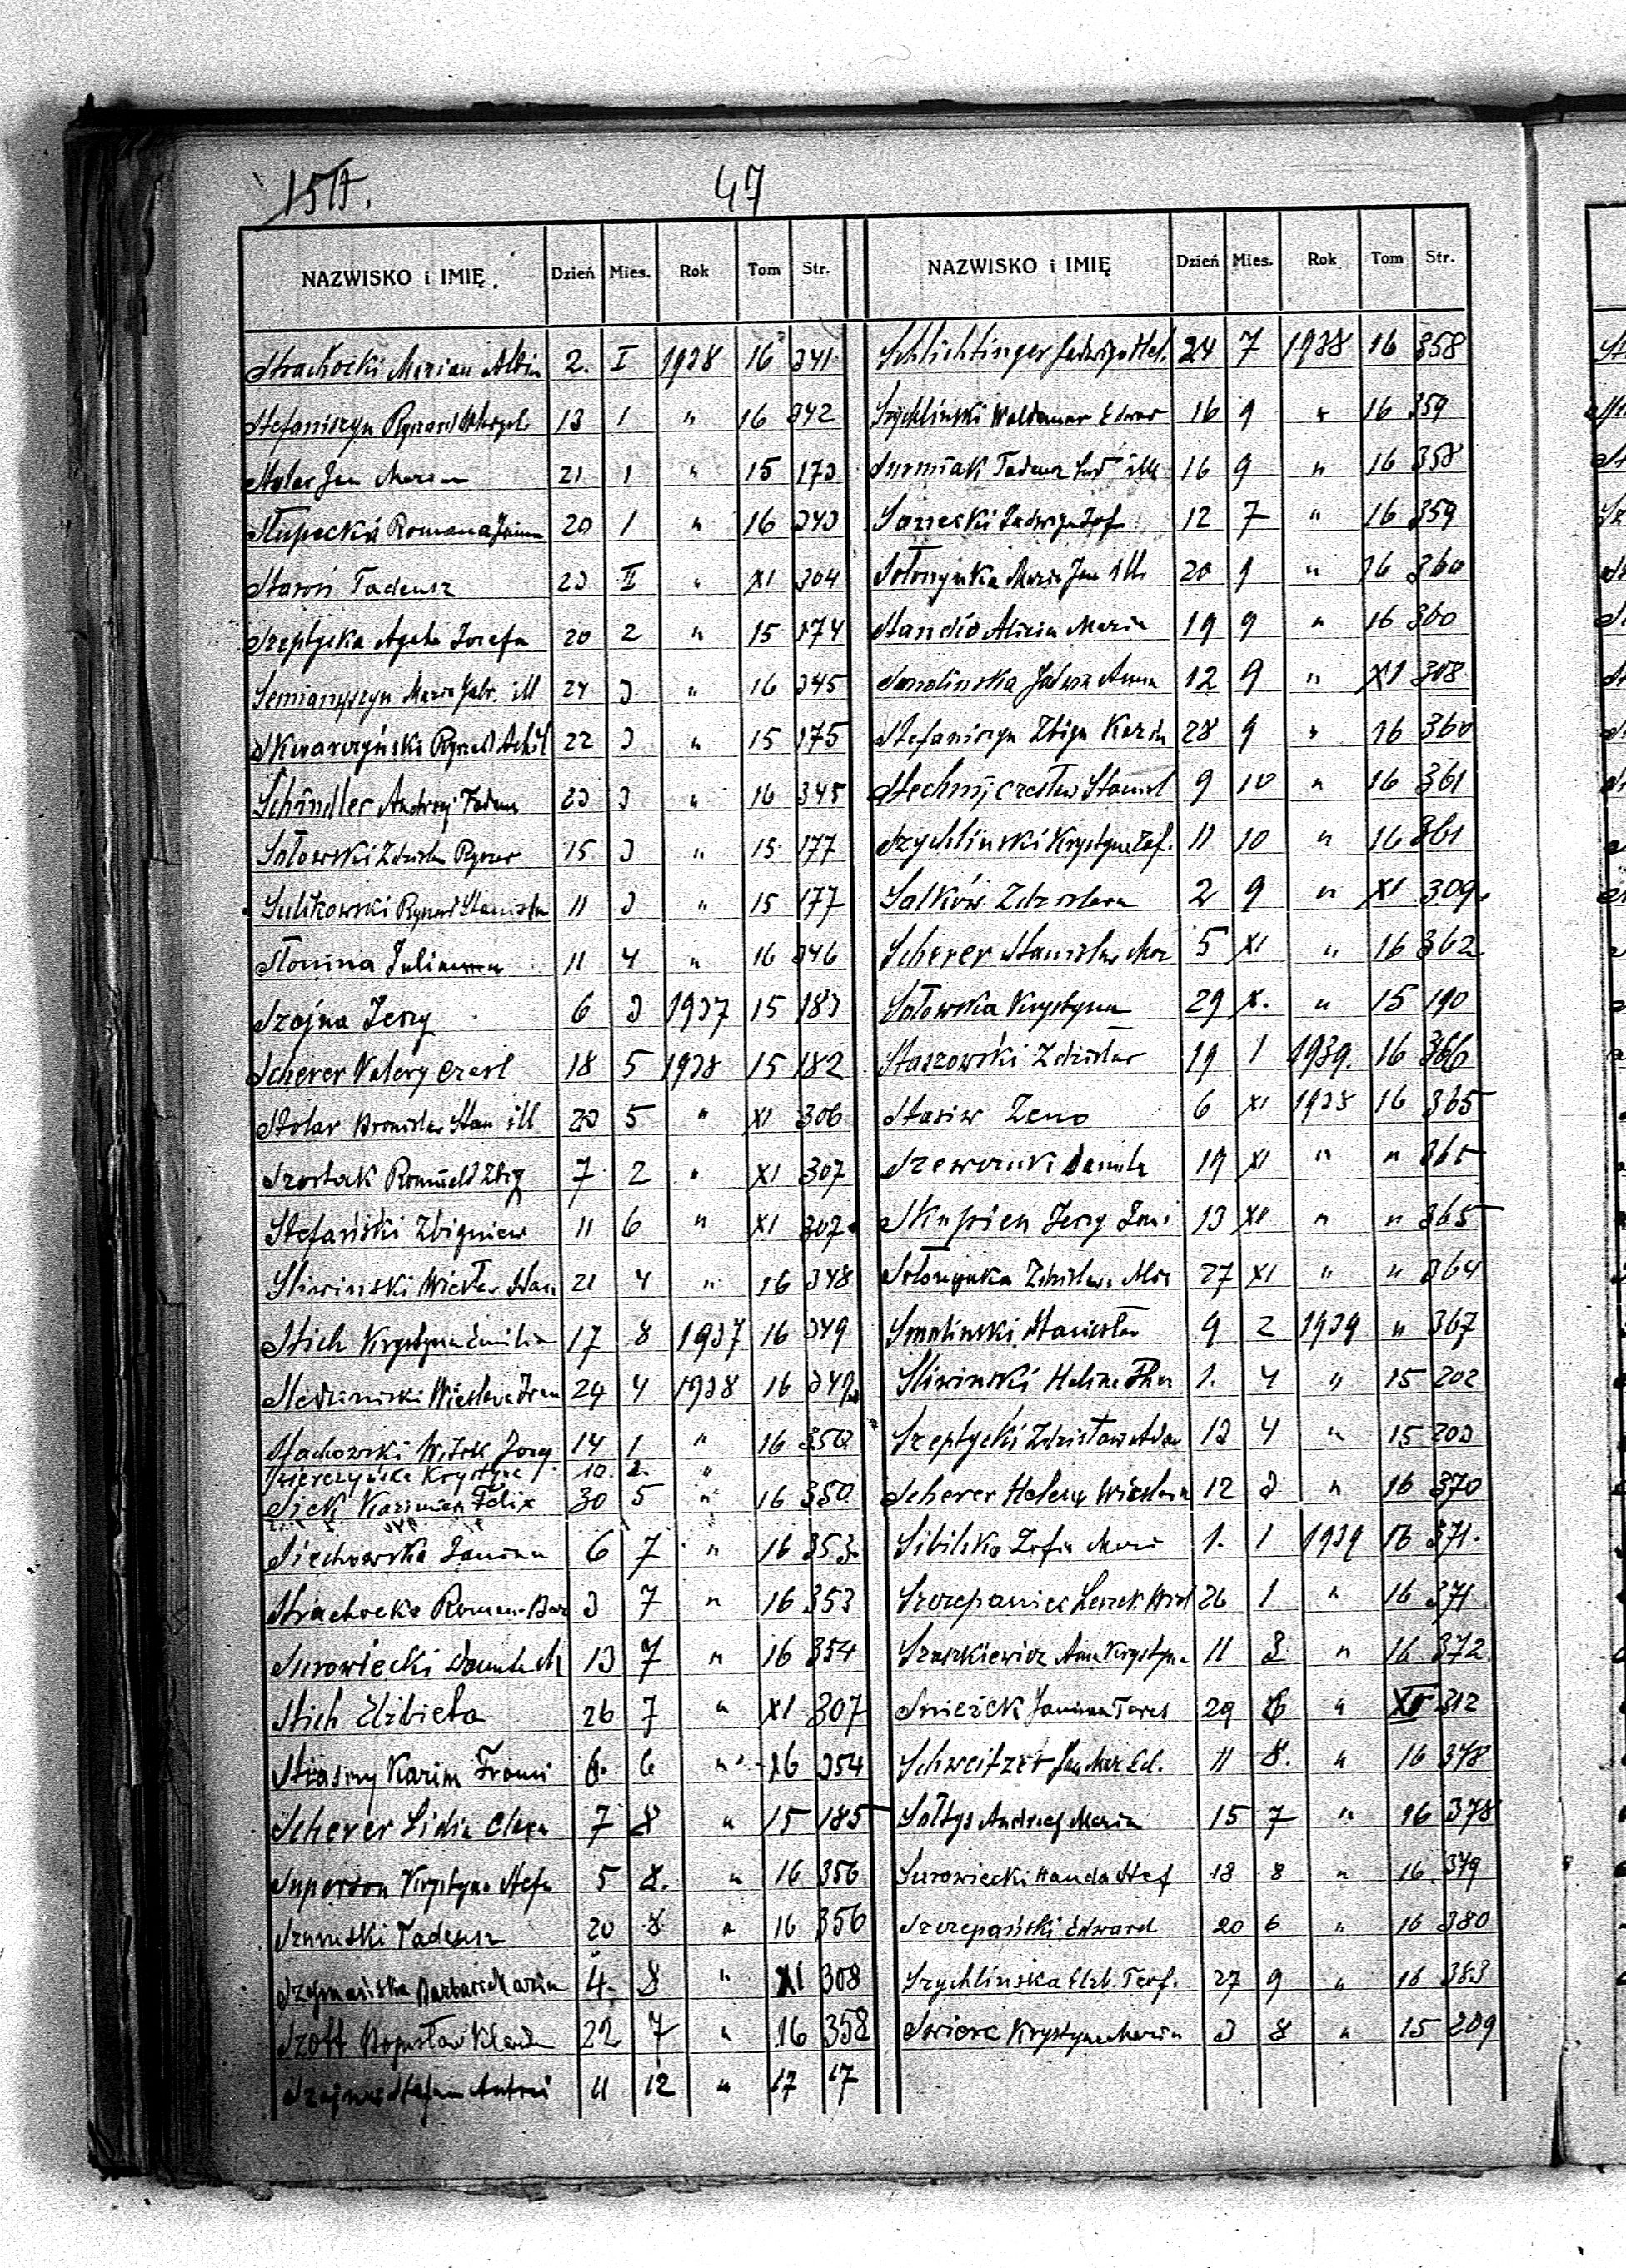 47
NAZWISKO i IMIĘ Dzień Mies. Rok Tom Str.
Strachocki Marian Albin 2. I 1938 16 341
Stefaniszyn Ryszard 13 1 " 16 342
Stolar Jan Marian 21 1 " 15 173
Słupecka Romana Janin 20 1 " 16 343
Staroń Tadeusz 23 II " XI 304
Szeptycka Agata Józefa 20 2 " 15 174
Semianyszyn Maria Gabr. ill 24 3 " 16 345
Skwarczyński Ryszard Achil 22 3 " 15 175
Schindler Andrzej Tadeus 23 3 " 16 345
Sołowski Zdzisła Ryszar 15 3 " 15 177
Sulikowski Ryszard Stanisła 11 3 " 15 177
Słonina Julianna 11 4 " 16 346
Szajna Jerzy 6 3 1937 15 183
Scherer Valery Czesł 18 5 1938 15 182
Stolar Bronisław Stan ill 23 5 " XI 306
Szostak Romuald Zbig 7 2 " XI 307
Stefański Zbigniew 11 6 " XI 307
Sliwinski Wiesław Stan 21 4 " 16 348
Stich Krystyna Emilia 17 8 1937 16 349
Wiesława Iren 24 4 1938 16 349
Stachowski Witold Jerzy 14 1 " 16 350
Krystyna 10. 2. "
Sick Kazimierz Felix 30 5 " 16 350
Siechowska Janina 6 7 " 16 353
Strachocka Roman Bar 3 7 " 16 353
Surowiecki Danuta M 13 7 " 16 354
Stich Elżbieta 26 7 " XI 307
Stiasny Karim Franci 6. 6 " 16 354
Scherer Lidia Clara 7 8 " 15 185
Superson Krystyna Stefa 5 8. " 16 356
Szumski Tadeusz 20 8 " 16 356
Szymańska Barbara Maria 4. 8 " XI 308
Szott Bogusław 22 7 " 16 358
Antoni 11 12 " 17 17
NAZWISKO i IMIĘ Dzień Mies. Rok Tom Str.
Schlichtinger Jadwiga Hel. 24 7 1938 16 358
Szychlinski Waldemar Edwar 16 9 " 16 359
Surmiak Tadeusz Lud ill 16 9 " 16 358
Sanecki Jadwiga Zof 12 7 " 16 359
Sołoszynka Maria Jan ill. 20 9 " 16 360
Standio Alicia Maria 19 9 " 16 360
Smolinska Anna 12 9 " XI 308
Stefaniszyn Zbign Kazim 28 9 " 16 360
Stechnij Czesław Stanisł 9 10 " 16 361
Szychlinski Krystyna Zof. 11 10 " 16 361
Salków Zdzisława 2 9 " XI 309.
Scherer Stanisław 5 XI " 16 362
Sołowska Krystyna 29 X. " 15 190
Staszowski Zdzisław 19 1 1939. 16 366
Stasiw Zeno 6 XI 1938 16 365
Szewczuk Danuta 19 XI " " 365
Skupien Jerzy 13 XI " " 365
Sołoszynka Zdzisław 27 XI " " 364
Smolinski Stanisław 9 2 1939 " 367
Sliwinski Halina 1. 4 " 15 202
Szeptycki Zdzisław Adam 13 4 " 15 203
Scherer Helena Wiesława 12 3 " 16 370
Sibilska Zofia Mari 1. 1 1939 16 371.
Szczepaniec Leszek 26 1 " 16 371
Szaszkiewicz Anna Krystyna 11 3 " 16 372
Snieżek Janina Teres 29 6 " XI 312
Schweitzer Jan Mar Ed. 11 8. " 16 378
Sołtys Andrzej Maria 15 7 " 16 378
Surowiecki Wanda Stef 18 8 " 16 379
Szczepański Edward 20 6 " 16 380
Szychlińska Elżb. Terf. 27 9 " 16 383
Swierc Krystyna Maria 3 8 " 15 209